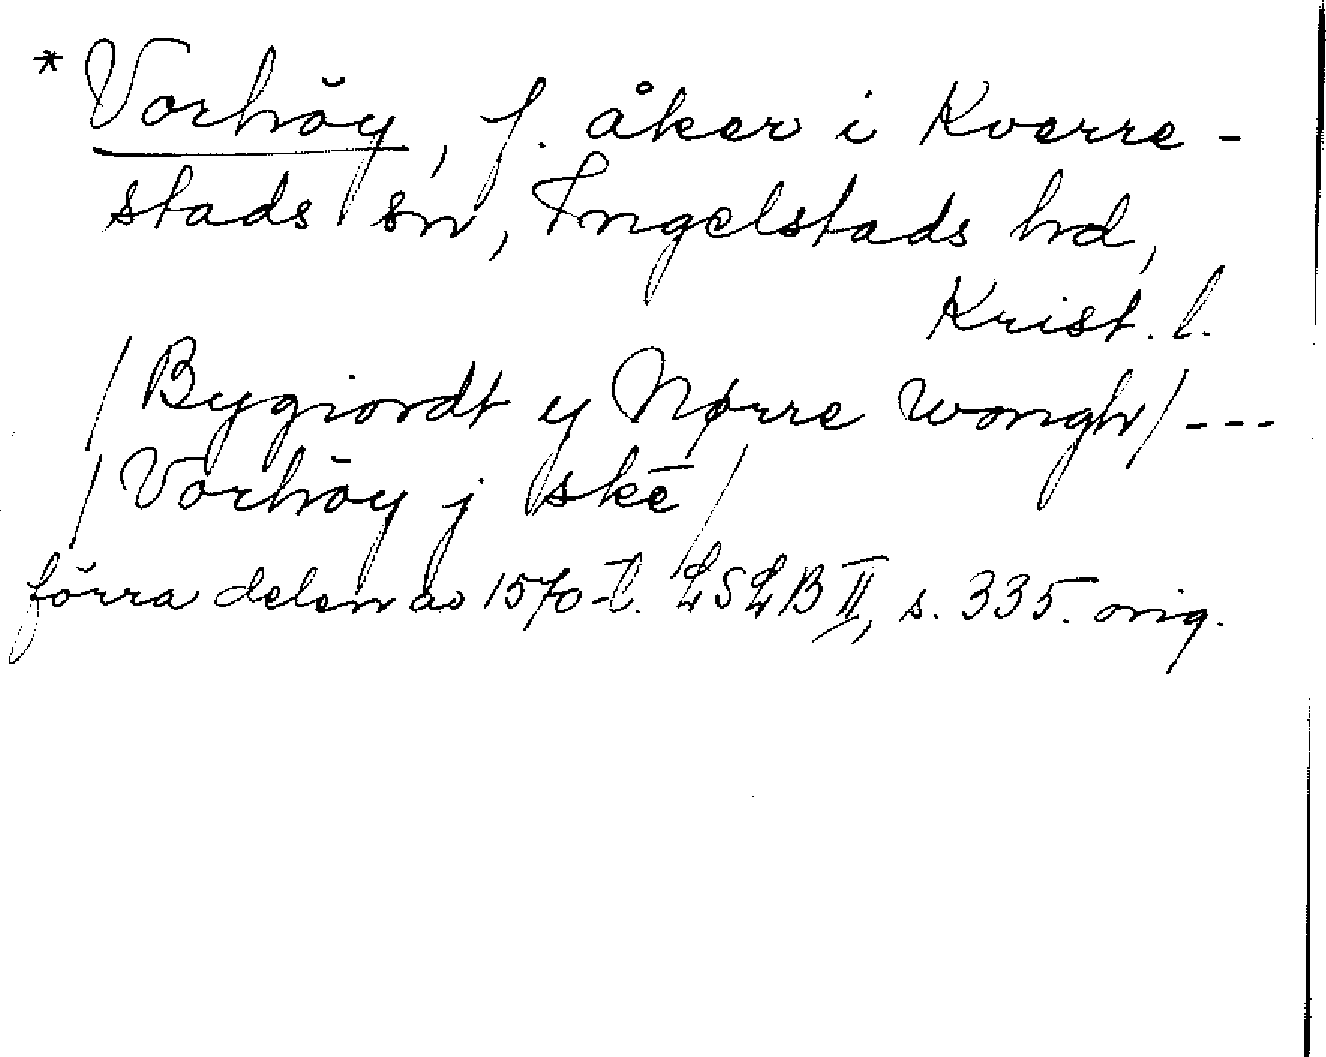 * Vorhöy, f. åker i Kverre-
stads sn, Ingelstads hd,
Krist. l.
/ Bygiordt y Nørre wongh / ---
/ Vorhöy j skē /
förra delen av 1570-t. LSLB II, s. 335. orig.